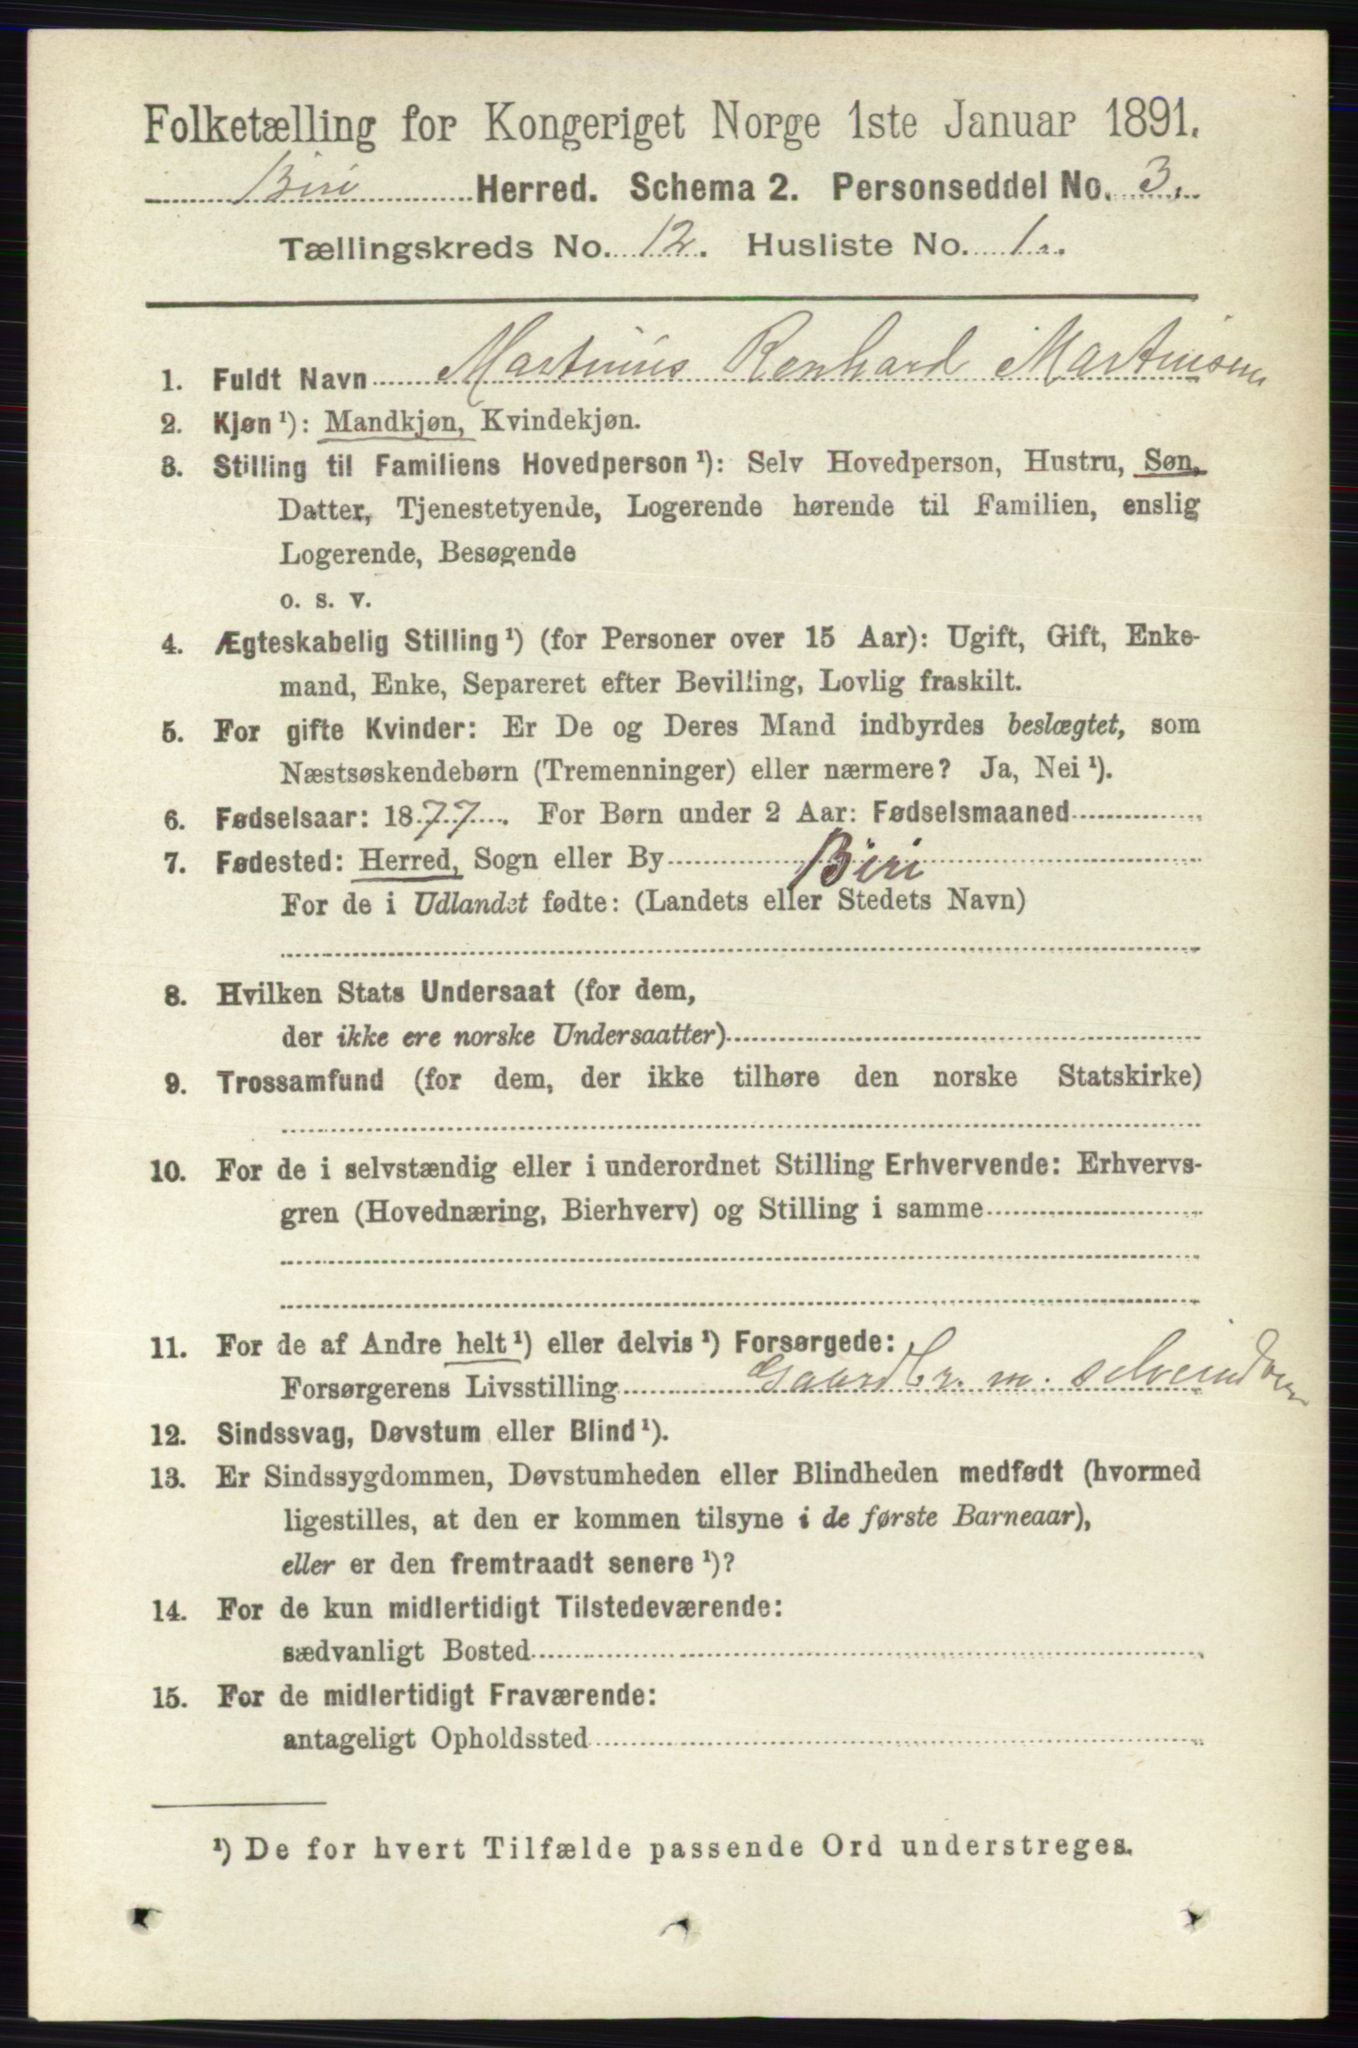 Folketælling for Kongeriget Norge 1ste Januar 1891.
Biri Herred. Schema 2. Personseddel No. 3.
Tællingskreds No. 12. Husliste No. 1.
1. Fuldt Navn Martinius Renhard Martinisen
2. Kjøn ¹): Mandkjøn, Kvindekjøn.
3. Stilling til Familiens Hovedperson ¹): Selv Hovedperson, Hustru, Søn,
Datter, Tjenestetyende, Logerende hørende til Familien, enslig
Logerende, Besøgende
o. s. v.
4. Ægteskabelig Stilling ¹) (for Personer over 15 Aar): Ugift, Gift, Enke-
mand, Enke, Separeret efter Bevilling, Lovlig fraskilt.
5. For gifte Kvinder: Er De og Deres Mand indbyrdes beslægtet, som
Næstsøskendebørn (Tremenninger) eller nærmere? Ja, Nei ¹).
6. Fødselsaar: 1877. For Børn under 2 Aar: Fødselsmaaned
7. Fødested: Herred, Sogn eller By Biri
For de i Udlandet fødte: (Landets eller Stedets Navn)
8. Hvilken Stats Undersaat (for dem,
der ikke ere norske Undersaatter)
9. Trossamfund (for dem, der ikke tilhøre den norske Statskirke)
10. For de i selvstændig eller i underordnet Stilling Erhvervende: Erhvervs-
gren (Hovednæring, Bierhverv) og Stilling i samme
11. For de af Andre helt ¹) eller delvis ¹) Forsørgede:
Forsørgerens Livsstilling Gaardbr. m. selveiendom
12. Sindssvag, Døvstum eller Blind ¹).
13. Er Sindssygdommen, Døvstumheden eller Blindheden medfødt (hvormed
ligestilles, at den er kommen tilsyne i de første Barneaar),
eller er den fremtraadt senere ¹)?
14. For de kun midlertidigt Tilstedeværende:
sædvanligt Bosted
15. For de midlertidigt Fraværende:
antageligt Opholdssted
¹) De for hvert Tilfælde passende Ord understreges.